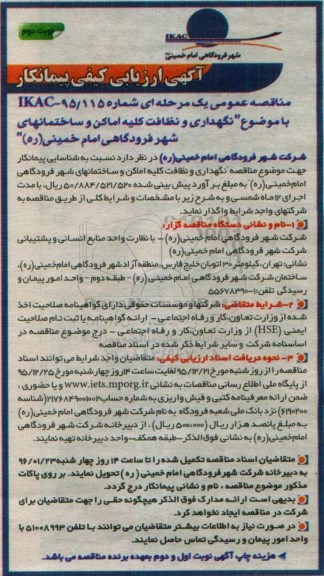 نوبت دوم
IKAC
شهر فرودگاهی امام خمینی(ره)
آگهی ارزیابی کیفی پیمانکار
مناقصه عمومی یک مرحله ای شماره IKAC-۹۵/۱۱۵
با موضوع "نگهداری و نظافت کلیه اماکن و ساختمانهای
شهر فرودگاهی امام خمینی(ره)"
شرکت شهر فرودگاهی امام خمینی(ره) در نظر دارد نسبت به شناسایی پیمانکار
جهت موضوع مناقصه نگهداری و نظافت کلیه اماکن و ساختمانهای شهر فرودگاهی
امام خمینی(ره) به مبلغ برآورد پیش بینی شده ۵۰/۸۸۴/۵۲۱/۵۲۰ ریال، با مدت
اجرای ۱۲ ماه شمسی و به شرح زیر با مشخصات و شرایط کلی از طریق مناقصه به
شرکتهای واجد شرایط واگذار نماید.
۱-نام و نشانی دستگاه مناقصه گزار:
شرکت شهر فرودگاهی امام خمینی(ره) – با نظارت واحد منابع انسانی و پشتیبانی
شرکت شهر فرودگاهی امام خمینی(ره)
نشانی: تهران، کیلومتر ۳۰ اتوبان خلیج فارس، منطقه آزاد شهر فرودگاهی امام خمینی(ره)،
ساختمان شرکت شهر فرودگاهی امام خمینی (ره) – طبقه دوم – واحد امور پیمان و
رسیدگی تلفن:
۲-شرایط متقاضی: شرکتها و موسسات حقوقی دارای گواهینامه صلاحیت اخذ
شده از وزارت تعاون، کار و رفاه اجتماعی – ارائه گواهینامه یا ثبت نام صلاحیت
ایمنی (HSE) از وزارت تعاون، کار و رفاه اجتماعی – درج موضوع مناقصه در
اساسنامه شرکت و سایر شرایط ذکر شده در اسناد مناقصه
۳- نحوه دریافت اسناد ارزیابی کیفی: متقاضیان واجد شرایط می توانند اسناد
مناقصه را از روز شنبه مورخ ۹۵/۱۲/۲۱ لغایت ساعت ۱۴ روز چهارشنبه مورخ ۹۵/۱۲/۲۵
از پایگاه ملی اطلاع رسانی مناقصات به نشانی www.iets.mporg.ir و یا حضوری ،
ضمن ارائه معرفینامه کتبی و فیش واریزی به شماره حساب (شناسه
) نزد بانک ملی شعبه فرودگاه به نام شرکت شهر فرودگاهی امام خمینی(ره)
به مبلغ پانصد هزار ریال (۵۰۰,۰۰۰ ریال) ، از دبیرخانه شرکت شهر فرودگاهی
امام خمینی(ره) به نشانی فوق الذکر-طبقه همکف-واحد دبیرخانه تهیه نمایند.
متقاضیان اسناد مناقصه تکمیل شده را تا ساعت ۱۴ روز چهار شنبه ۹۶/۰۱/۲۳
به دبیرخانه شرکت شهر فرودگاهی امام خمینی (ره) تحویل نمایند. بر روی پاکات
مذکور موضوع مناقصه ، نام و نشانی پیمانکار درج گردد.
بدیهی است ارائه مدارک فوق الذکر هیچگونه حقی را جهت متقاضیان برای
شرکت در مناقصه ایجاد نخواهد کرد.
در صورت نیاز به اطلاعات بیشتر متقاضیان می توانند با تلفن ۵۱۰۰۸۹۹۳ با
واحد امور پیمان و رسیدگی تماس حاصل نمایند.
هزینه چاپ آگهی نوبت اول و دوم بعهده برنده مناقصه می باشد.